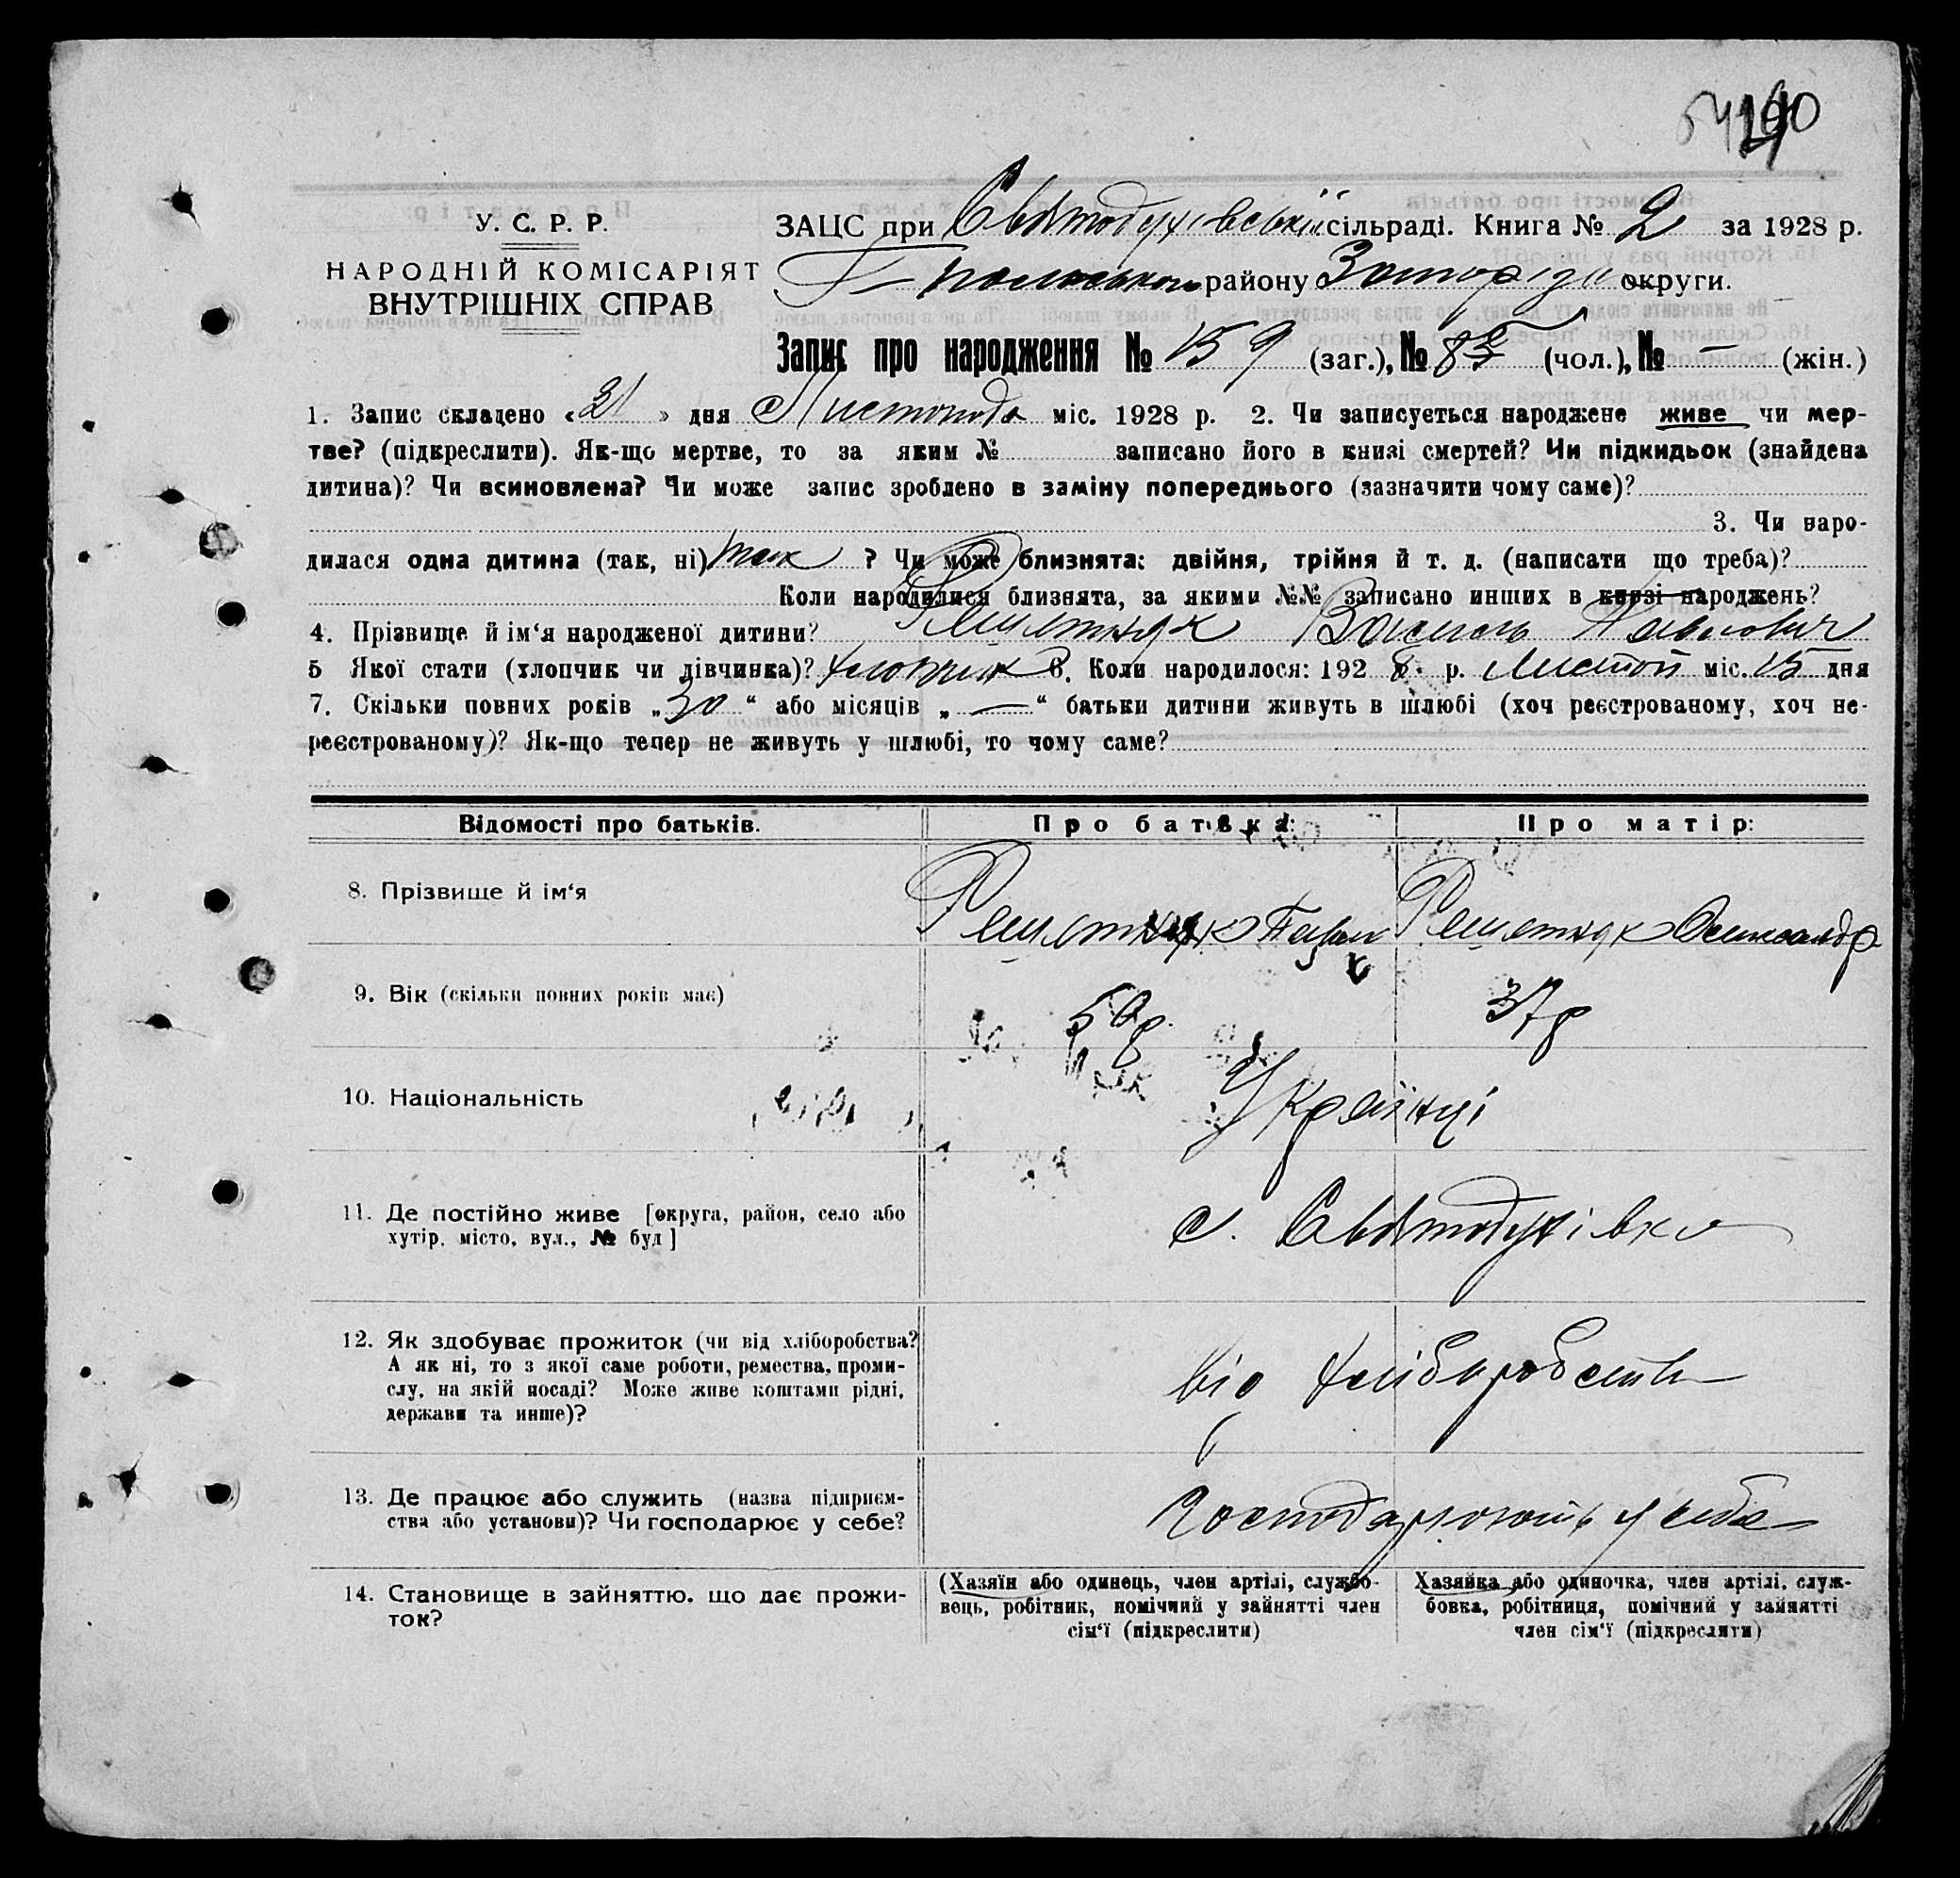 У. С. Р. Р.
НАРОДНІЙ КОМІСАРІЯТ
ВНУТРІШНІХ СПРАВ
ЗАЦС при Святодухівській сільраді. Книга № 2 за 1928 р.
району Запоріз округи.
Запис про народження № 159 (заг.), № (чол.), № — (жін.)
1. Запис складено « » дня Листопада міс. 1928 р. 2. Чи записується народжене живе чи мер-
тве? (підкреслити). Як-що мертве, то за яким № записано його в книзі смертей? Чи підкидьок (знайдена
дитина)? Чи всиновлена? Чи може запис зроблено в заміну попереднього (зазначити чому саме)?
3. Чи наро-
дилася одна дитина (так, ні) так ? Чи може близнята: двійня, трійня й т. д. (написати що треба)?
Коли народилися близнята, за якими №№ записано инших в книзі народжень?
4. Прізвище й ім‘я народженої дитини? Решетняк Василь Павлович
5 Якої стати (хлопчик чи дівчинка)? хлопчик 6. Коли народилося: 1928 р. Листоп міс. 15 дня
7. Скільки повних років „30“ або місяців „—“ батьки дитини живуть в шлюбі (хоч реєстрованому, хоч не-
реєстрованому)? Як-що тепер не живуть у шлюбі, то чому саме?
Відомості про батьків. Про батька: Про матір:
8. Прізвище й ім‘я Решетняк Павло Решетняк Олександр
9. Вік (скільки повних років має) 50р. 37р
10. Національність Українці
11. Де постійно живе [округа, район, село або
хутір, місто, вул., № буд] с. Святодухівка
12. Як здобуває прожиток (чи від хліборобства?
А як ні, то з якої саме роботи, ремества, проми-
слу, на якій посаді? Може живе коштами рідні,
держави та инше)? від хліборобства
13. Де працює або служить (назва підприєм-
ства або установи)? Чи господарює у себе? Господарюють у себе
14. Становище в зайняттю, що дає прожи-
ток?
(Хазяїн або одинець, член артілі, службо-
вець, робітник, помічний у зайнятті член
сім‘ї (підкреслити)
Хазяйка або одиночка, член артілі, служ-
бовка, робітниця, помічний у зайнятті
член сім‘ї (підкреслити)